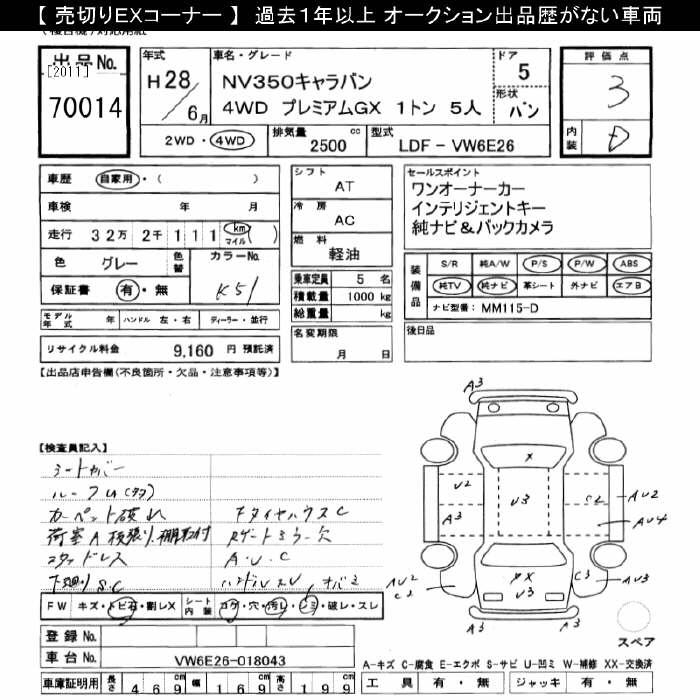 【 売切りEXコーナー 】 過去1年以上 オークション出品歴がない車両
出品No.
[2011]
70014
年式
H28/6月
車名・グレード
NV350キャラバン
4WD プレミアムGX 1トン 5人
ドア
5
形状
バン
評価点
3
内装
D
2WD・4WD
排気量
2500 cc
型式
LDF-VW6E26
車歴 自家用・( )
車検 年 月
走行 32万 2千 111 km マイル ( )
色 グレー
色替
カラーNo.
K51
保証書 有・無
モデル年式 年 ハンドル 左・右 ディーラー・並行
リサイクル料金 9,160 円 預託済
シフト
AT
冷房
AC
燃料
軽油
乗車定員 5 名
積載量 1000 kg
総重量 kg
名変期限
月 日
セールスポイント
ワンオーナーカー
インテリジェントキー
純ナビ&バックカメラ
装備品
S/R 純A/W P/S P/W ABS
純TV 純ナビ 革シート 外ナビ エアB
ナビ型番: MM115-D
後日品
【出品店申告欄(不良箇所・欠品・注意事項等)】
【検査員記入】
シートカバー
カーペット破れ
荷室A 板張り、棚取付
スタッドレス
下廻りS.C
FタイヤハウスC
Rゲートミラー欠
A・U・C
FW キズ・トビ石・割レX
シート内装 コゲ・穴・汚レ・シミ・破レ・スレ
登録No.
車台No. VW6E26-018043
車庫証明用 長さ 469 幅 169 高さ 199
A3
U2
A3
X
U3
C2
AU2
AU4
AU2
C2
XX
U3
C3
AU3
A3
スペア
A-キズ C-腐食 E-エクボ S-サビ U-凹ミ W-補修 XX-交換済
工具 有・無 ジャッキ 有・無